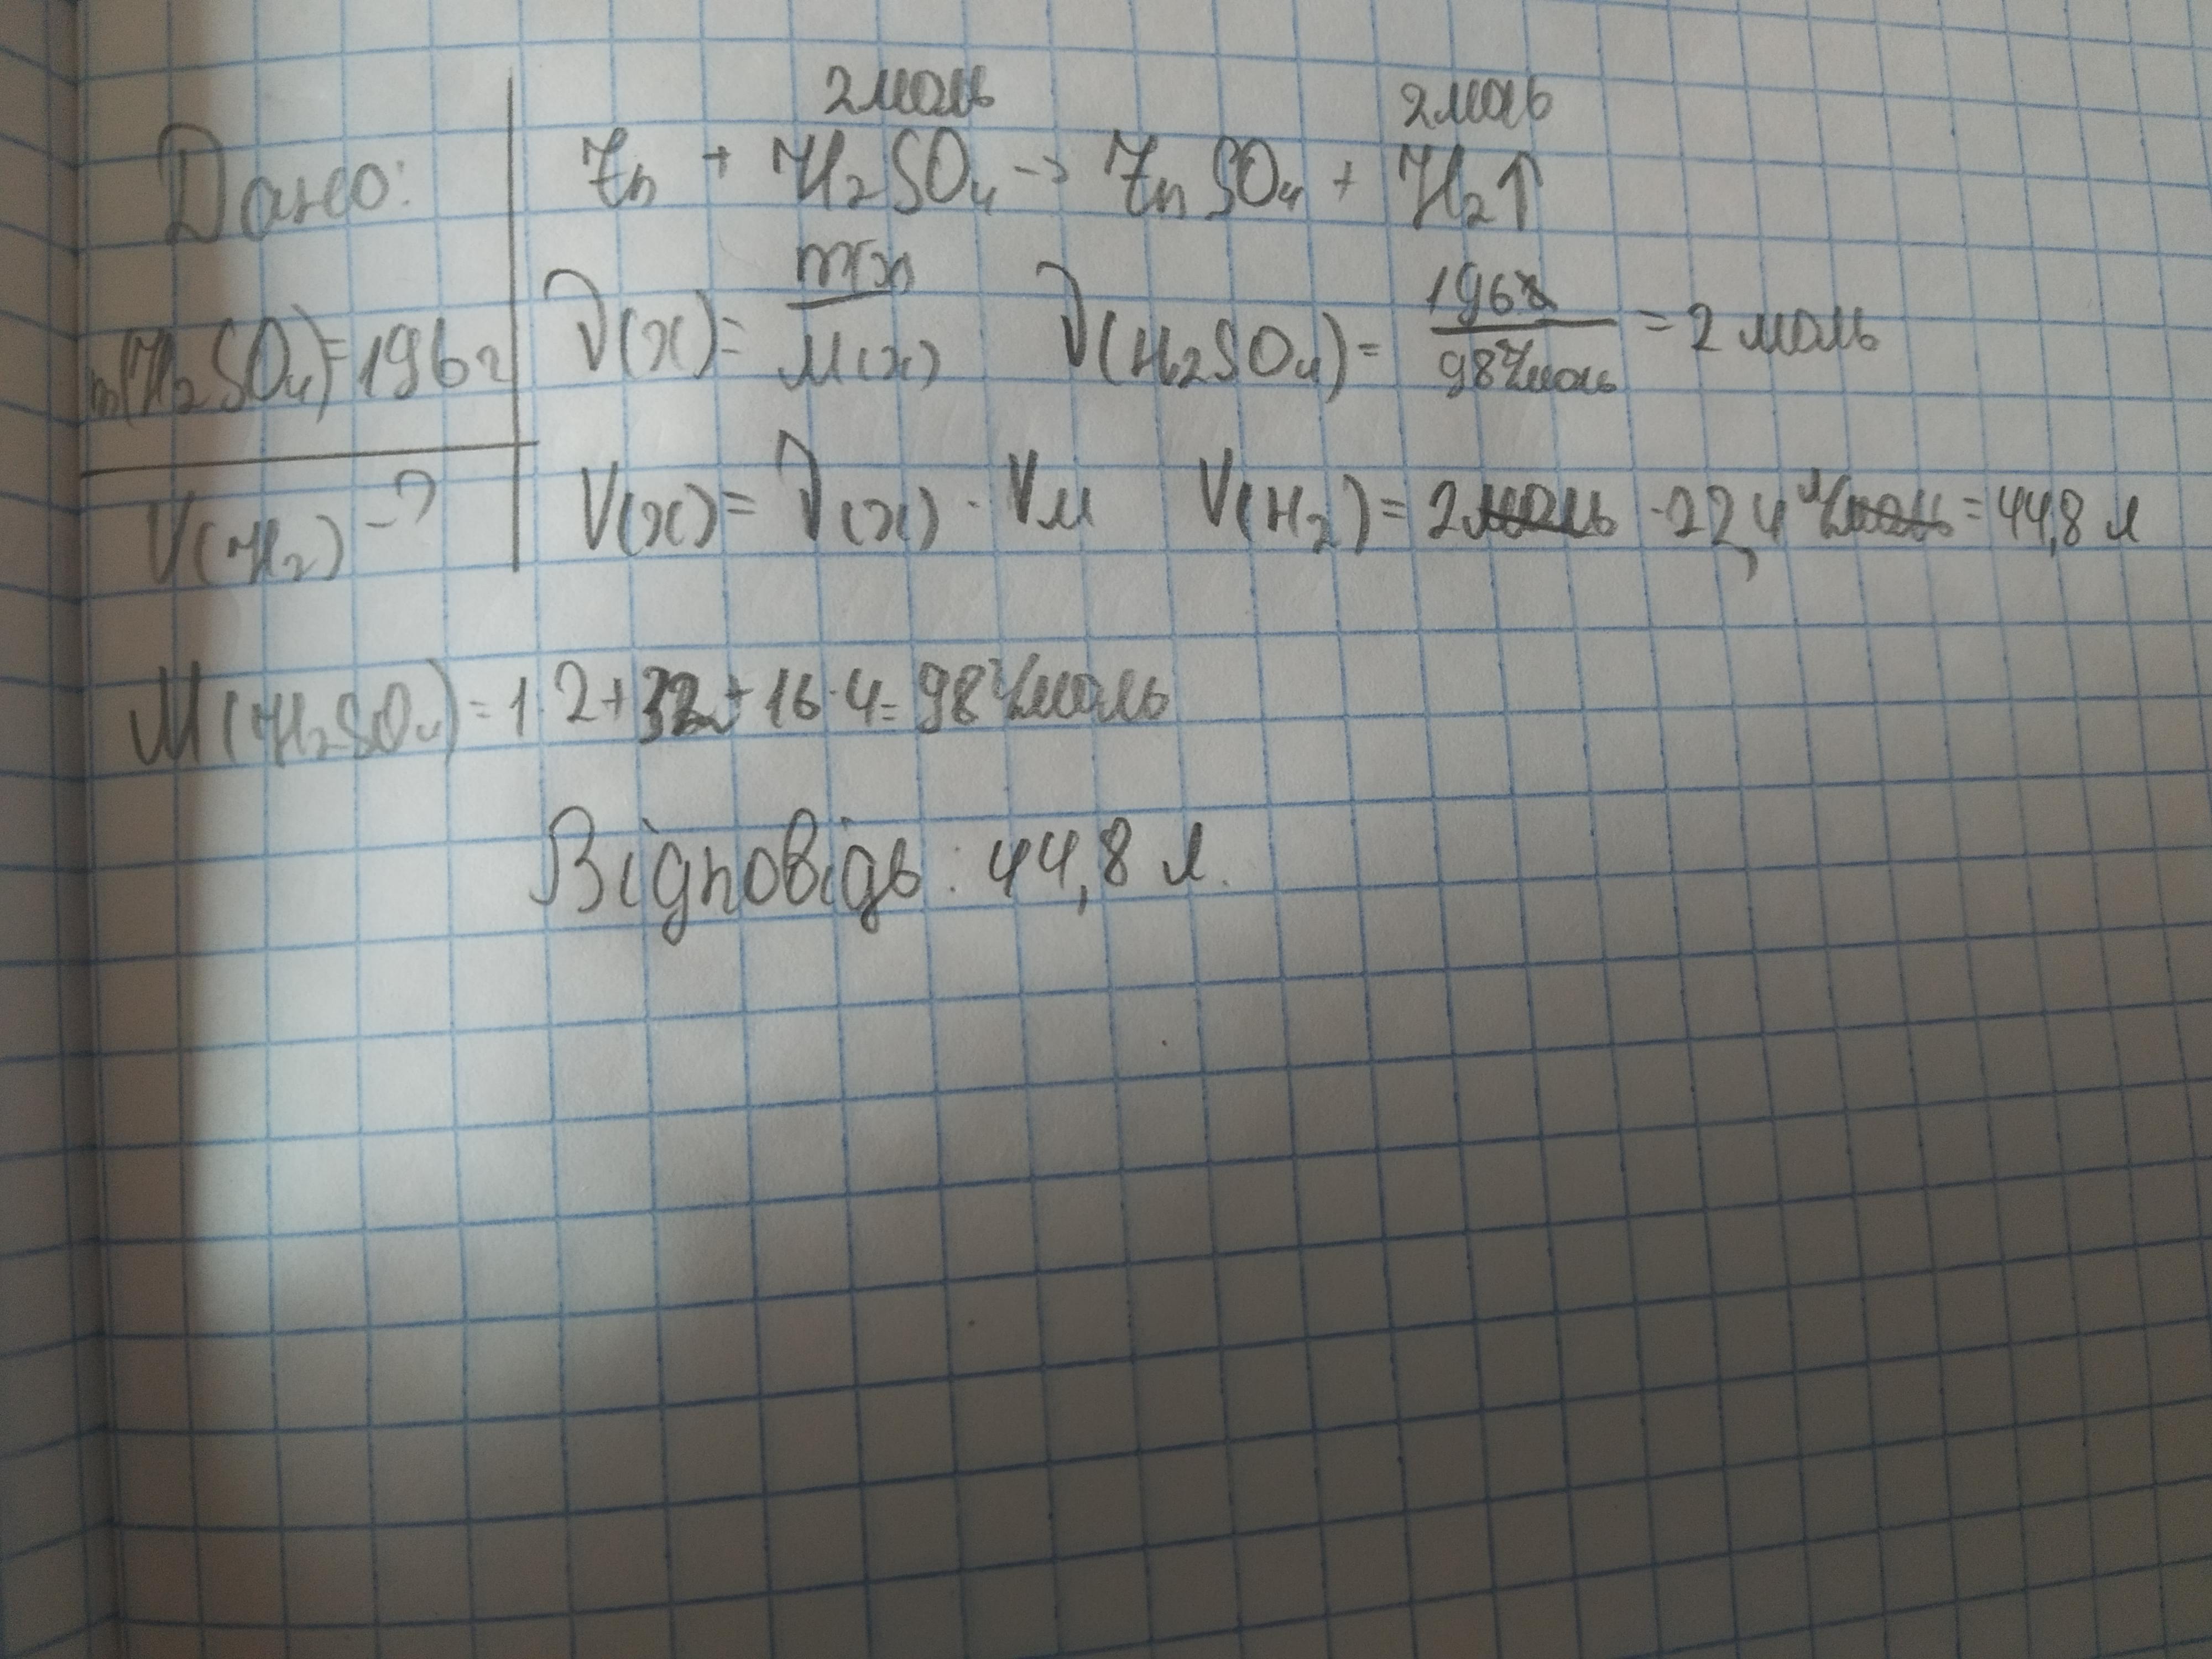 Дано:
m(H₂SO₄)=196г
V(H₂)-?
2моль 2моль
Zn + H₂SO₄ -> ZnSO₄ + H₂↑
ν(x)= m(x)/M(x) ν(H₂SO₄)= 196г/98г/моль =2 моль
V(x)= ν(x) · Vм V(H₂)= 2моль ·22,4 л/моль=44,8 л
M(H₂SO₄)=1·2+32+16·4=98г/моль
Відповідь: 44,8 л.